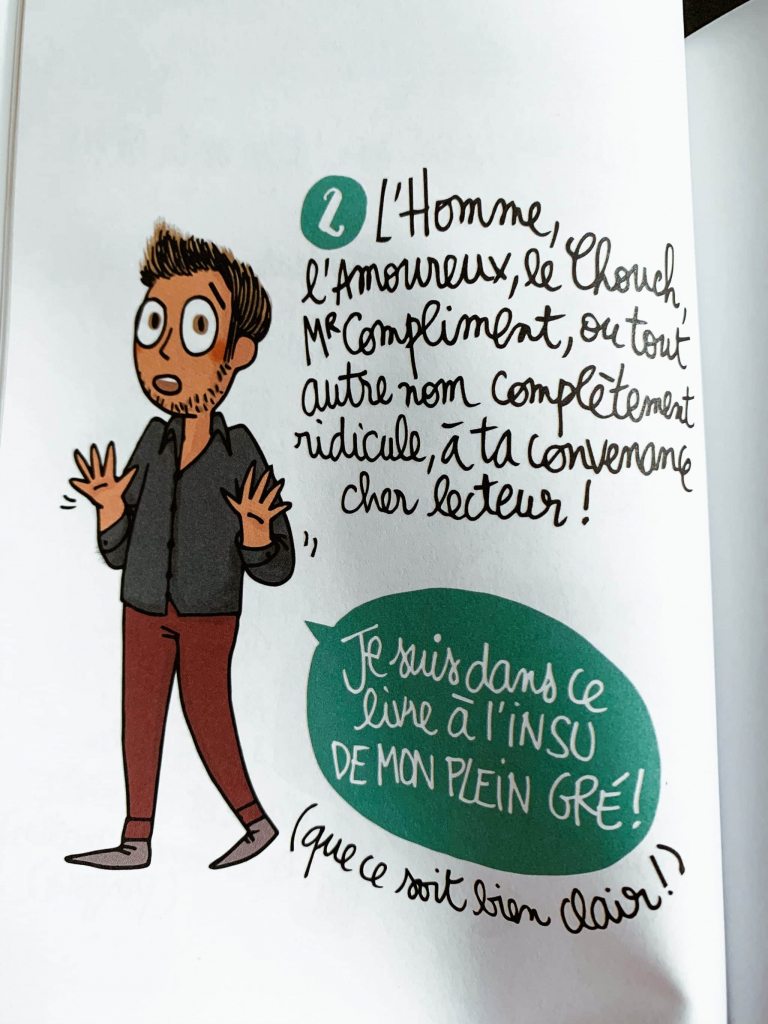 2 L'Homme,
l'Amoureux, le Chouch,
Mr Compliment, ou tout
autre nom complètement
ridicule, à ta convenance
cher lecteur !
Je suis dans ce
livre à l'INSU
DE MON PLEIN GRÉ !
(que ce soit bien clair !)